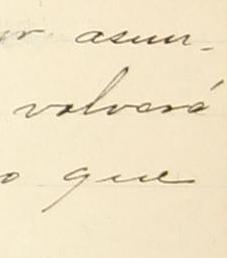 r asun-
volverá
o que